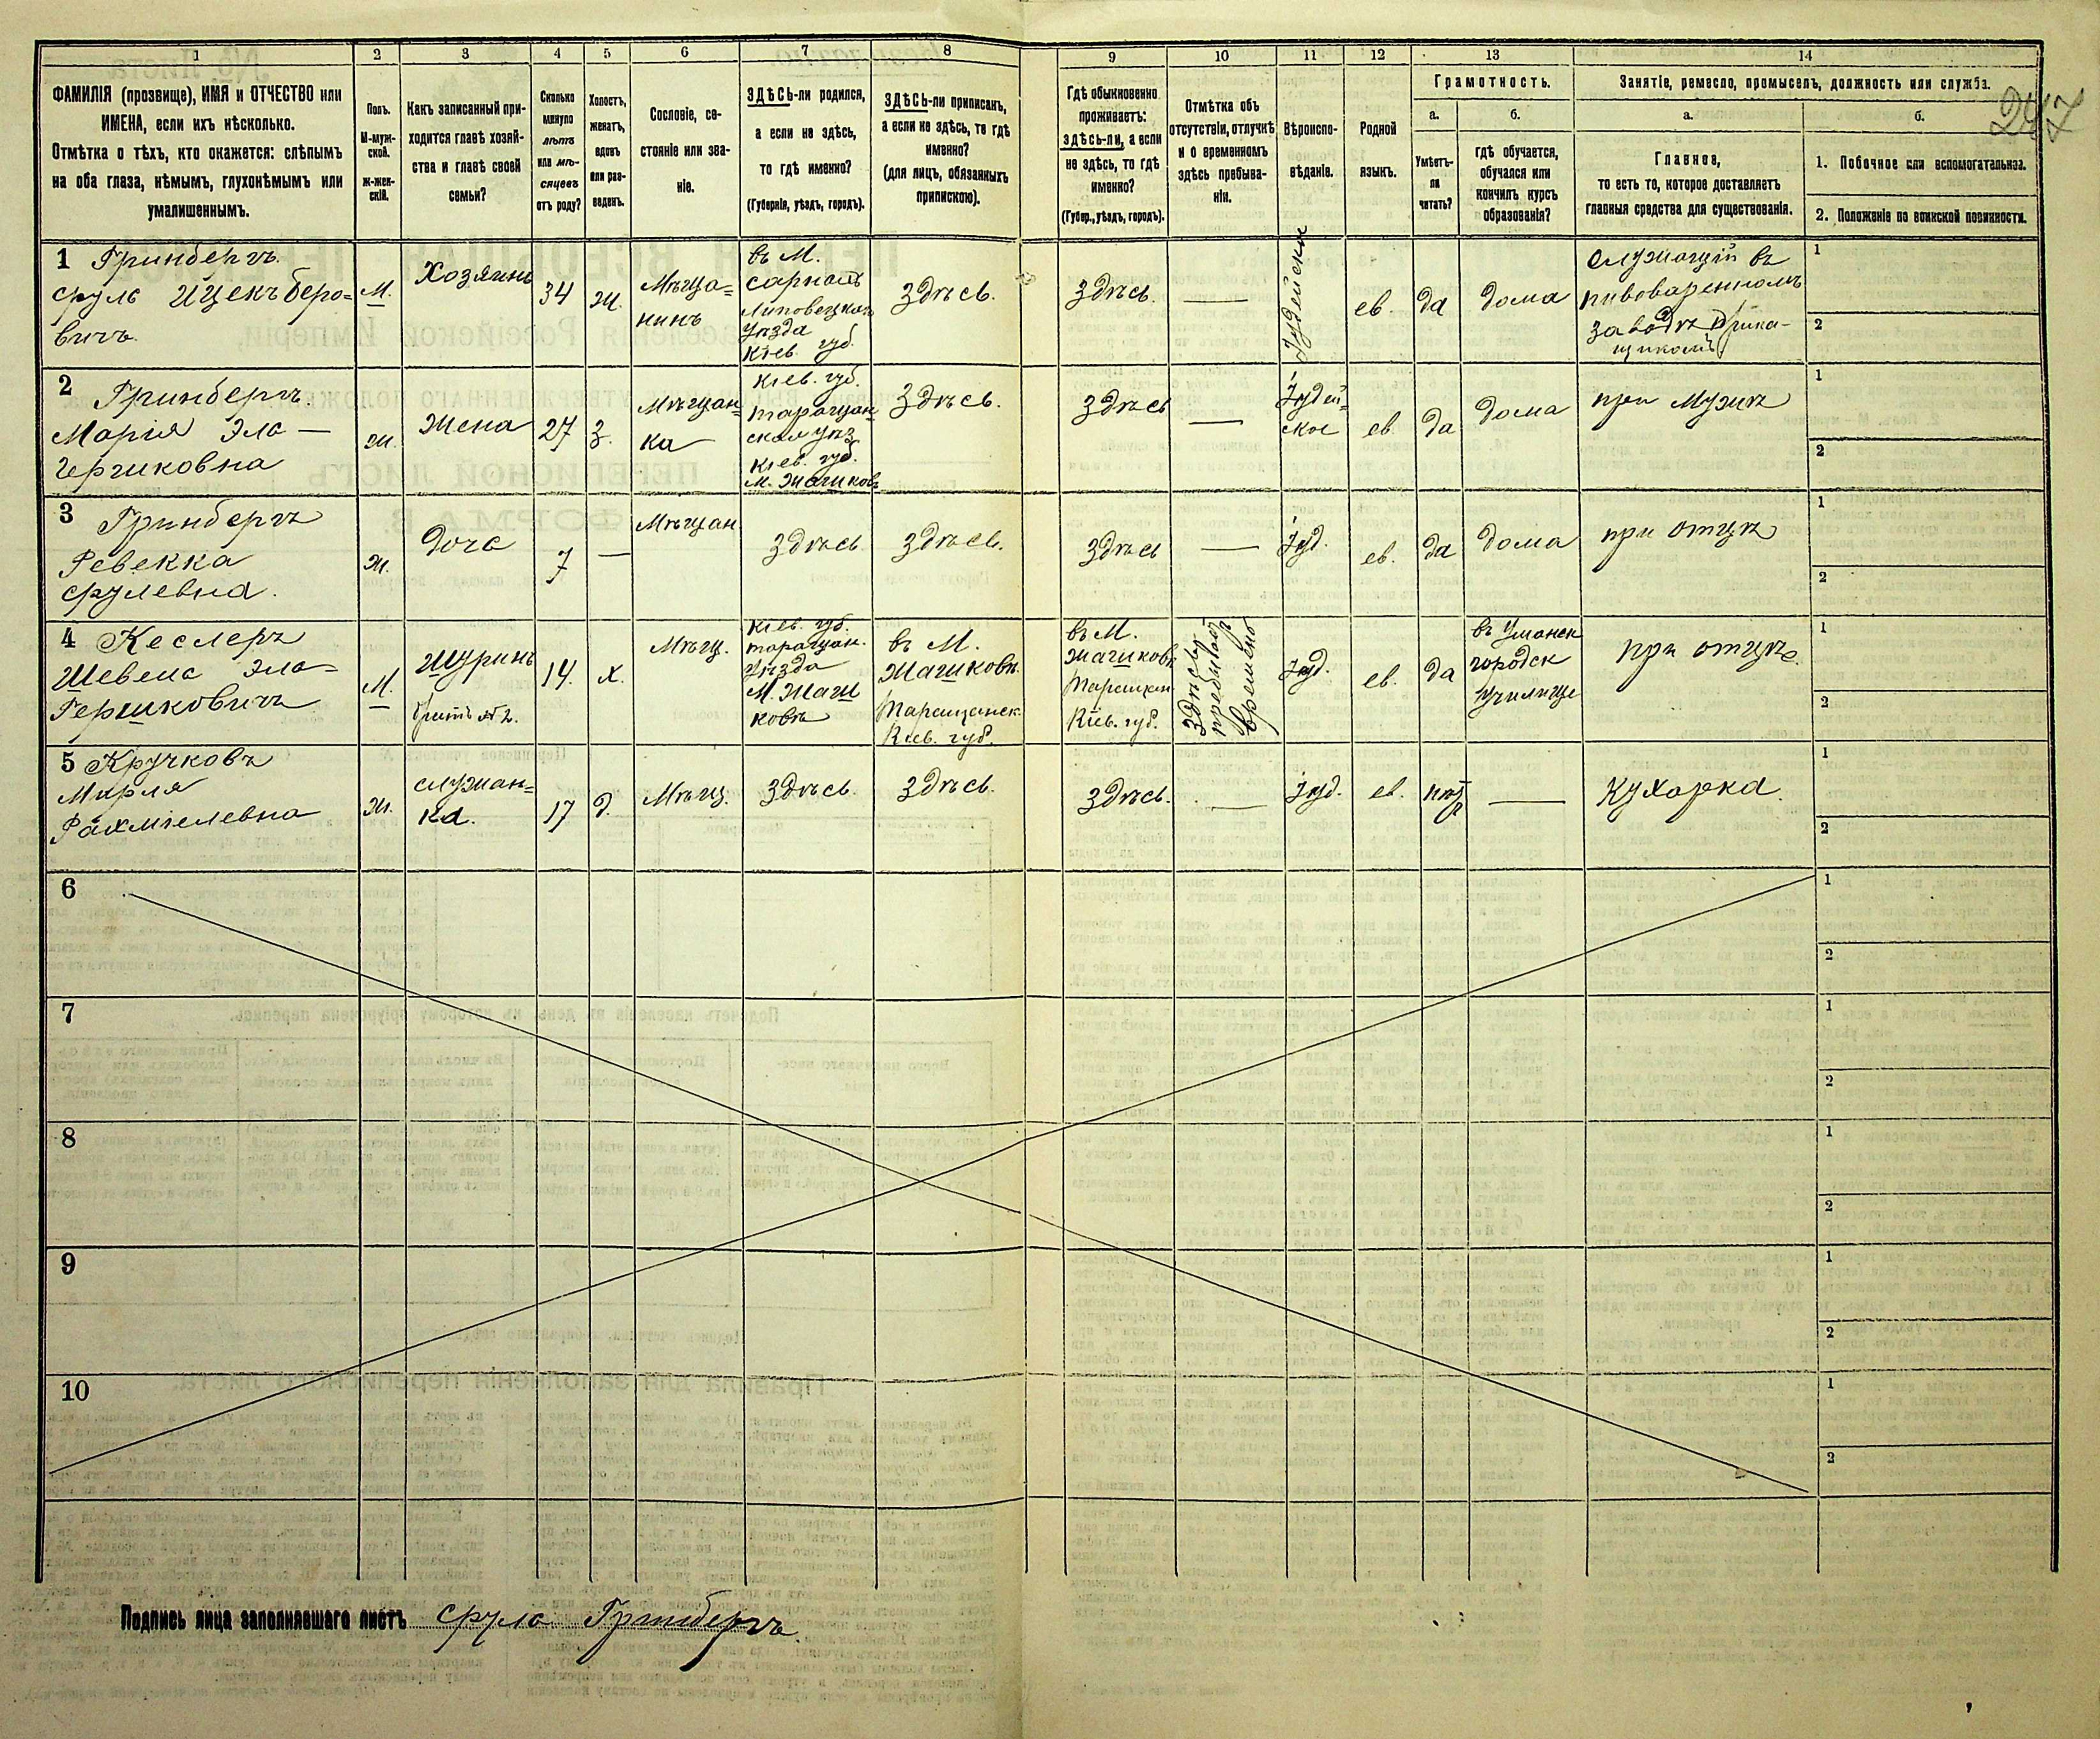 1 2 3 4 5 6 7 8 9 10 11 12 13 14
ФАМИЛІЯ (прозвище), ИМЯ и ОТЧЕСТВО или
ИМЕНА, если ихъ нѣсколько.
Отмѣтка о тѣхъ, кто окажется: слѣпымъ
на оба глаза, нѣмымъ, глухонѣмымъ или
умалишеннымъ.
Полъ.
М-муж-
ской.
Ж-жен-
скій.
Какъ записанный при-
ходится главѣ хозяй-
ства и главѣ своей
семьи?
Сколько
минуло
лѣтъ
или мѣ-
сяцевъ
отъ роду?
Холостъ,
женатъ,
вдовъ
или раз-
веденъ.
Сословіе, со-
стояніе или зва-
ніе.
ЗДѢСЬ-ли родился,
а если не здѣсь,
то гдѣ именно?
(Губернія, уѣздъ, городъ).
ЗДѢСЬ-ли приписанъ,
а если не здѣсь, то гдѣ
именно?
(для лицъ, обязанныхъ
припискою).
Гдѣ обыкновенно
проживаетъ:
здѣсь-ли, а если
не здѣсь, то гдѣ
именно?
(Губер., уѣздъ, городъ).
Отмѣтка объ
отсутствіи, отлучкѣ
и о временномъ
здѣсь пребыва-
ніи.
Вѣроиспо-
вѣданіе.
Родной
языкъ.
Грамотность.
а.
Умѣетъ-
ли
читать?
б.
гдѣ обучается,
обучался или
кончилъ курсъ
образованія?
Занятіе, ремесло, промыселъ, должность или служба.
247
а.
Главное,
то есть то, которое доставляетъ
главныя средства для существованія.
б.
1. Побочное или вспомогательное.
2. Положеніе по воинской повинности.
1 Гринбергъ
Сруль Ицекъ Беро-
вичъ.
М.
Хозяинъ
34
Ж.
Мѣща-
нинъ
въ М.
Липовецкаго
Уѣзда
Кіев. губ.
Здѣсь.
Здѣсь.
—
Іудейски
ев.
да
дома
Служащій въ
пивоваренномъ
заводѣ Прика-
щикомъ
1
2
2 Гринбергъ.
Марія Эло —
Гершковна
Ж.
Жена
27
З.
Мѣщан-
ка
Кіев. губ.
Таращан-
ская уѣз.
Кіев. губ.
М. Жашковъ
Здѣсь.
Здѣсь
—
Іудей-
ское
ев.
да
дома
при Мужѣ
1
2
3 Гринбергъ
Ревекка
Срулевна.
Ж.
Дочь
7
—
Мѣщан
Здѣсь
Здѣсь.
Здѣсь
—
Іуд.
ев.
да
дома
при отцѣ
1
2
4 Кеслеръ
Шевель Эло-
Гершковичъ
М.
Шуринъ
братъ №2.
14.
х.
Мѣщ.
Кіев. губ.
Таращан.
Уѣзда
М. Жаш
ковъ
въ М.
Жашковѣ.
Таращанск.
Кіев. губ.
въ М.
Жашковѣ
Таращан
Кіев. губ.
Здѣсь
временно
Іуд.
ев.
да
въ Уманск
городск
училище
при отцѣ.
1
2
5 Кручковъ
Мирля
Рахміелевна
Ж.
служан-
ка.
17
д.
Мѣщ.
Здѣсь.
Здѣсь.
Здѣсь.
—
Іуд.
ев.
нѣтъ
—
Кухарка.
1
2
6
1
2
7
1
2
8
1
2
9
1
2
10
1
2
Подпись лица заполнявшаго листъ Сруль Гринбергъ.